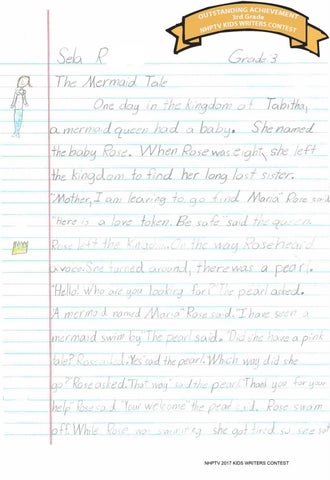 OUTSTANDING ACHIEVEMENT
3rd Grade
NHPTV KIDS WRITERS CONTEST
Sela R Grade 3
The Mermaid Tale
One day in the kingdom of Tabitha,
a mermaid queen had a baby. She named
the baby Rose. When Rose was eight, she left
the kingdom to find her long last sister.
"Mother, I am leaving to go find Maria" Rose said
"Here is a love token. Be safe" said the queen.
Rose left the Kingdom. On the way Rose heard
a voice. She turned around, there was a pearl.
"Hello! Who are you looking for?" The pearl asked.
"A mermaid named Maria" Rose said. I have seen a
mermaid swim by" The pearl said. "Did she have a pink
tale? Rose asked. Yes" said the pearl. Which way did she
go?" Rose asked. That way" said the pearl. Thank you for your
help" Rose said. "Your welcome" the pearl said. Rose swam
off. While Rose was swimming she got tired so see sat
NHPTV 2017 KIDS WRITERS CONTEST